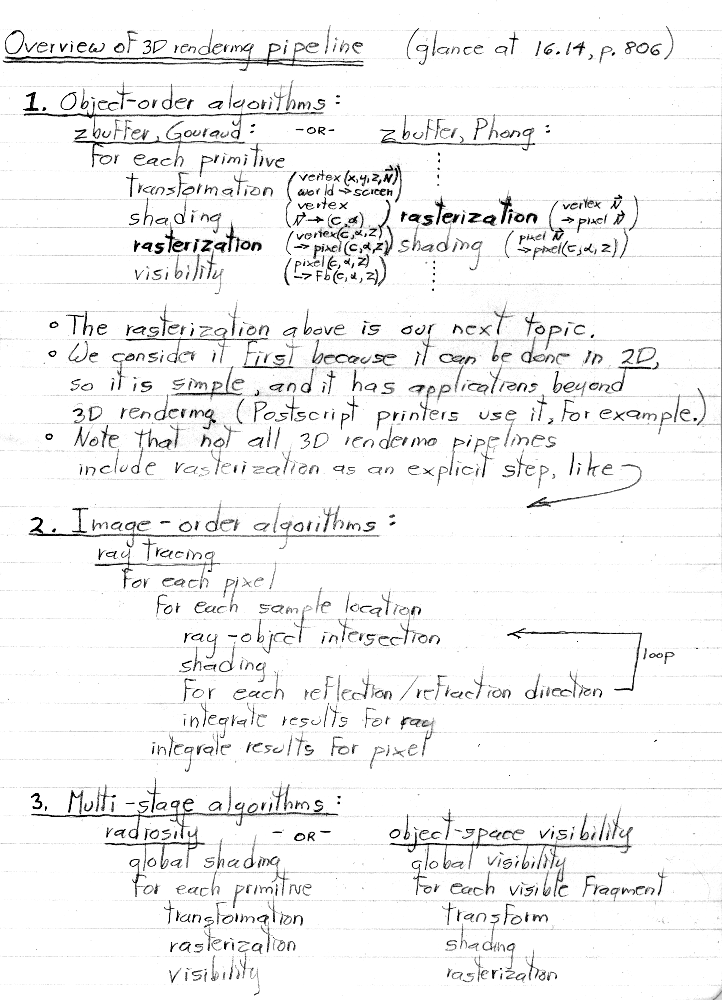 Overview of 3D rendering pipeline (glance at 16.14, p. 806)
1. Object-order algorithms:
zbuffer, Gouraud: -OR- zbuffer, Phong:
for each primitive
transformation (vertex (x,y,z,N⃗) world → screen)
shading (vertex N⃗ → (c,α)) rasterization (vertex N⃗ → pixel N⃗)
rasterization (vertex (c,α,z) → pixel (c,α,z)) shading (pixel N⃗ → pixel (c,α,z))
visibility (pixel (c,α,z) → fb (c,α,z))
• The rasterization above is our next topic.
• We consider it first because it can be done in 2D,
so it is simple, and it has applications beyond
3D rendering (Postscript printers use it, for example.)
• Note that not all 3D rendering pipelines
include rasterization as an explicit step, like
2. Image-order algorithms:
ray tracing
for each pixel
for each sample location
ray-object intersection
shading
loop
for each reflection/refraction direction
integrate results for ray
integrate results for pixel
3. Multi-stage algorithms:
radiosity -OR- object-space visibility
global shading global visibility
for each primitive for each visible fragment
transformation transform
rasterization shading
visibility rasterization